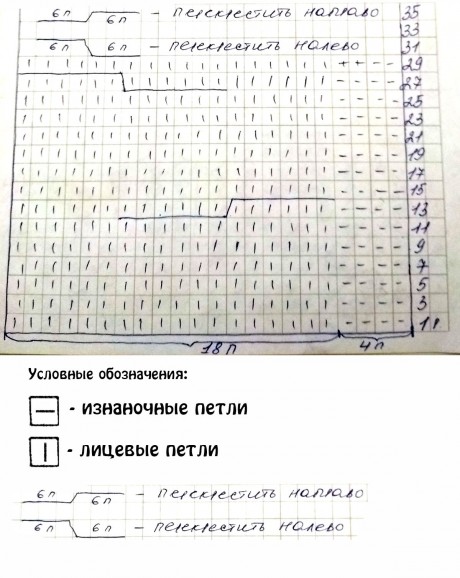 6п 6п - перекрестить направо 35
33
6п 6п - перекрестить налево 31
29
27
25
23
21
19
17
15
13
11
9
7
5
3
1
18п 4п
Условные обозначения:
- изнаночные петли
- лицевые петли
6п 6п - перекрестить направо
6п 6п - перекрестить налево